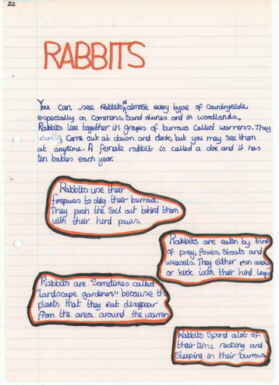 22
RABBITS
You can see Rabbits in almost every type of countryside
especially on Commons, Sand dunes and in woodlands.
Rabbits live together in groups of burrows called warrens. They
Come out at dawn and dusk, but you may see them
at anytime. A female rabbit is called a doe and it has
ten babies each year.
Rabbits use their
forepaws to dig their burrows.
They push the Soil out behind them
with their hind paws.
Rabbits are eaten by birds
of prey, foxes, Stoats and
weasels. They either run away
or kick with their hind legs
Rabbits are Sometimes called
landscape gardeners" because the
plants that they eat disappear
from the area around the warren
Rabbits Spend alot of
their time resting and
Sleeping in their burrows